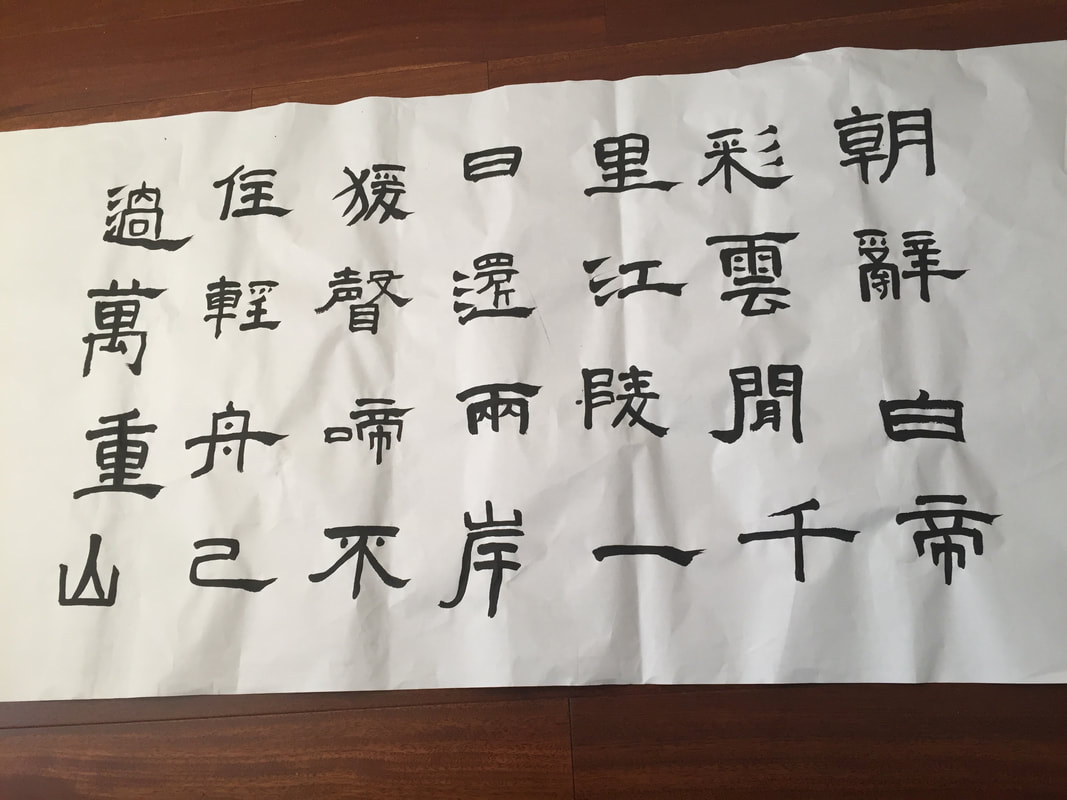 朝辭白帝
彩雲閒千
里江陵一
日還兩岸
猨聲啼不
住輕舟已
過萬重山